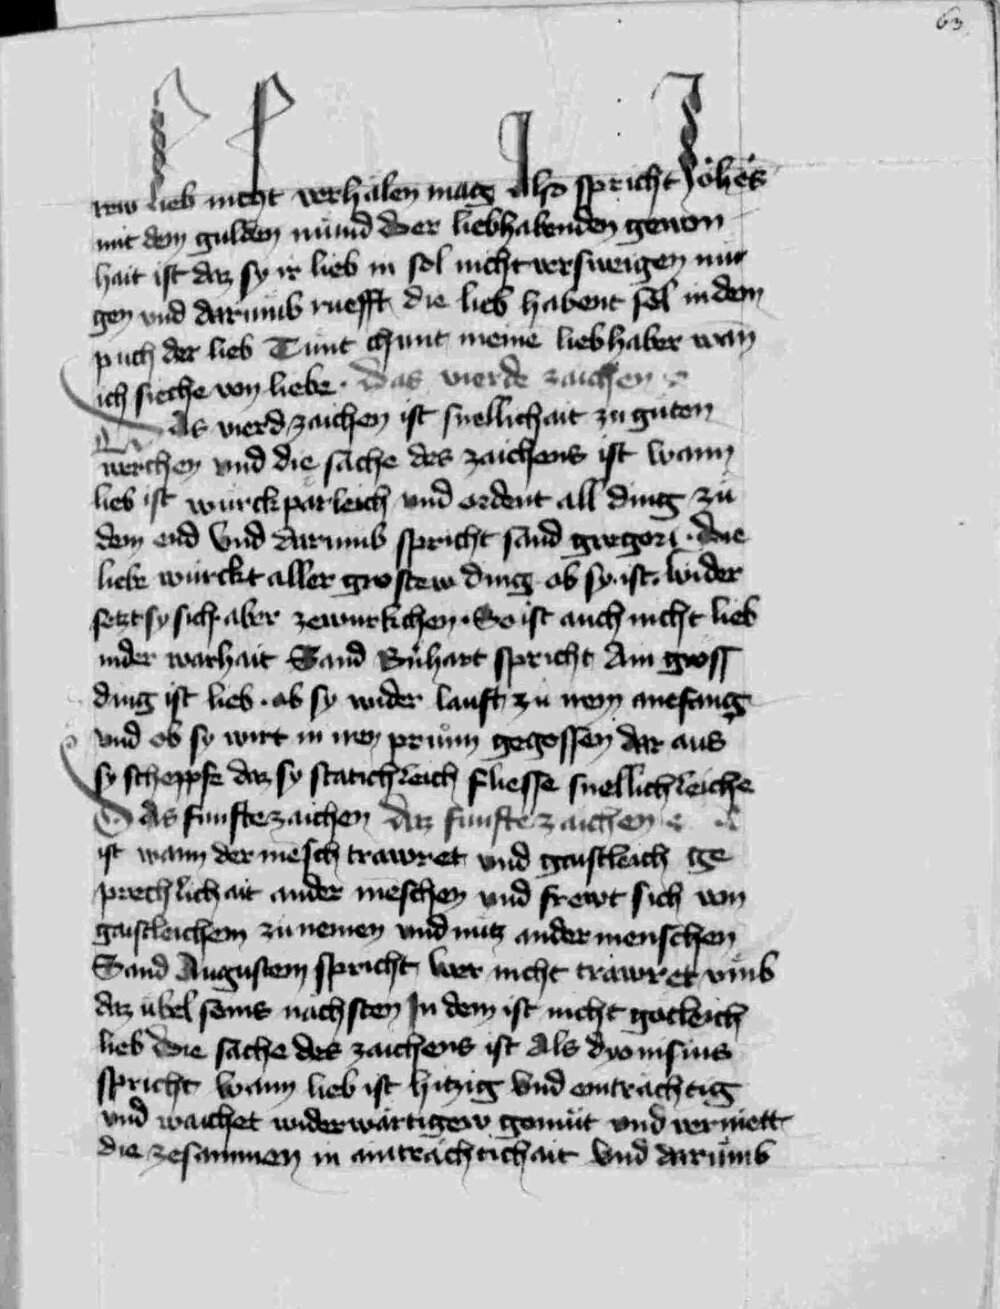 63
trew lieb nicht verhalen mag Also spricht Johes
mit dem gulden mund Der liebhabenden gewon
hait ist daz sy ir lieb in sol nicht versweigen mu
gen vnd darumb ruefft die lieb habent sel in dem
puch der lieb Tunt chunt meine liebhaber wan
ich sieche von liebe. Das vierde zaichen
Das vierd zaichen ist snellichait zu guten
werchen vnd die sache des zaichens ist wann
lieb ist wurckparleich vnd ordent all ding zu
dem end Vnd darumb spricht sand gregori. Die
liebe wurckt aller grostew ding ob sy ist. Wider
setzt sy sich aber zewurkchen. So ist auch nicht lieb
inder warhait Sand Bnhart spricht Ain gross
ding ist lieb. ob sy wider lauft zu irem anefang
vnd ob sy wirt in iren prunn gegossen dar aus
sy scheppfe daz sy statichleich fliesse snellichleiche
Das funfte zaichen Daz funfte zaichen
ist wann der mesch trawret vmb gaistleich ge
prechlichait ander meschen vnd frewt sich von
gaistleichem zunemen vnd nutz ander menschen
Sand Augustein spricht Wer nicht trawret vmb
daz ubel seins nachsten In dem ist nicht gotleich
lieb Die sache des zaichens ist Als dyonisius
spricht Wann lieb ist hitzig Vnd eintrachtig
vnd waichet widerwartigew gemut vnd vermett
die zesammen in aintrachtichait Vnd darumb